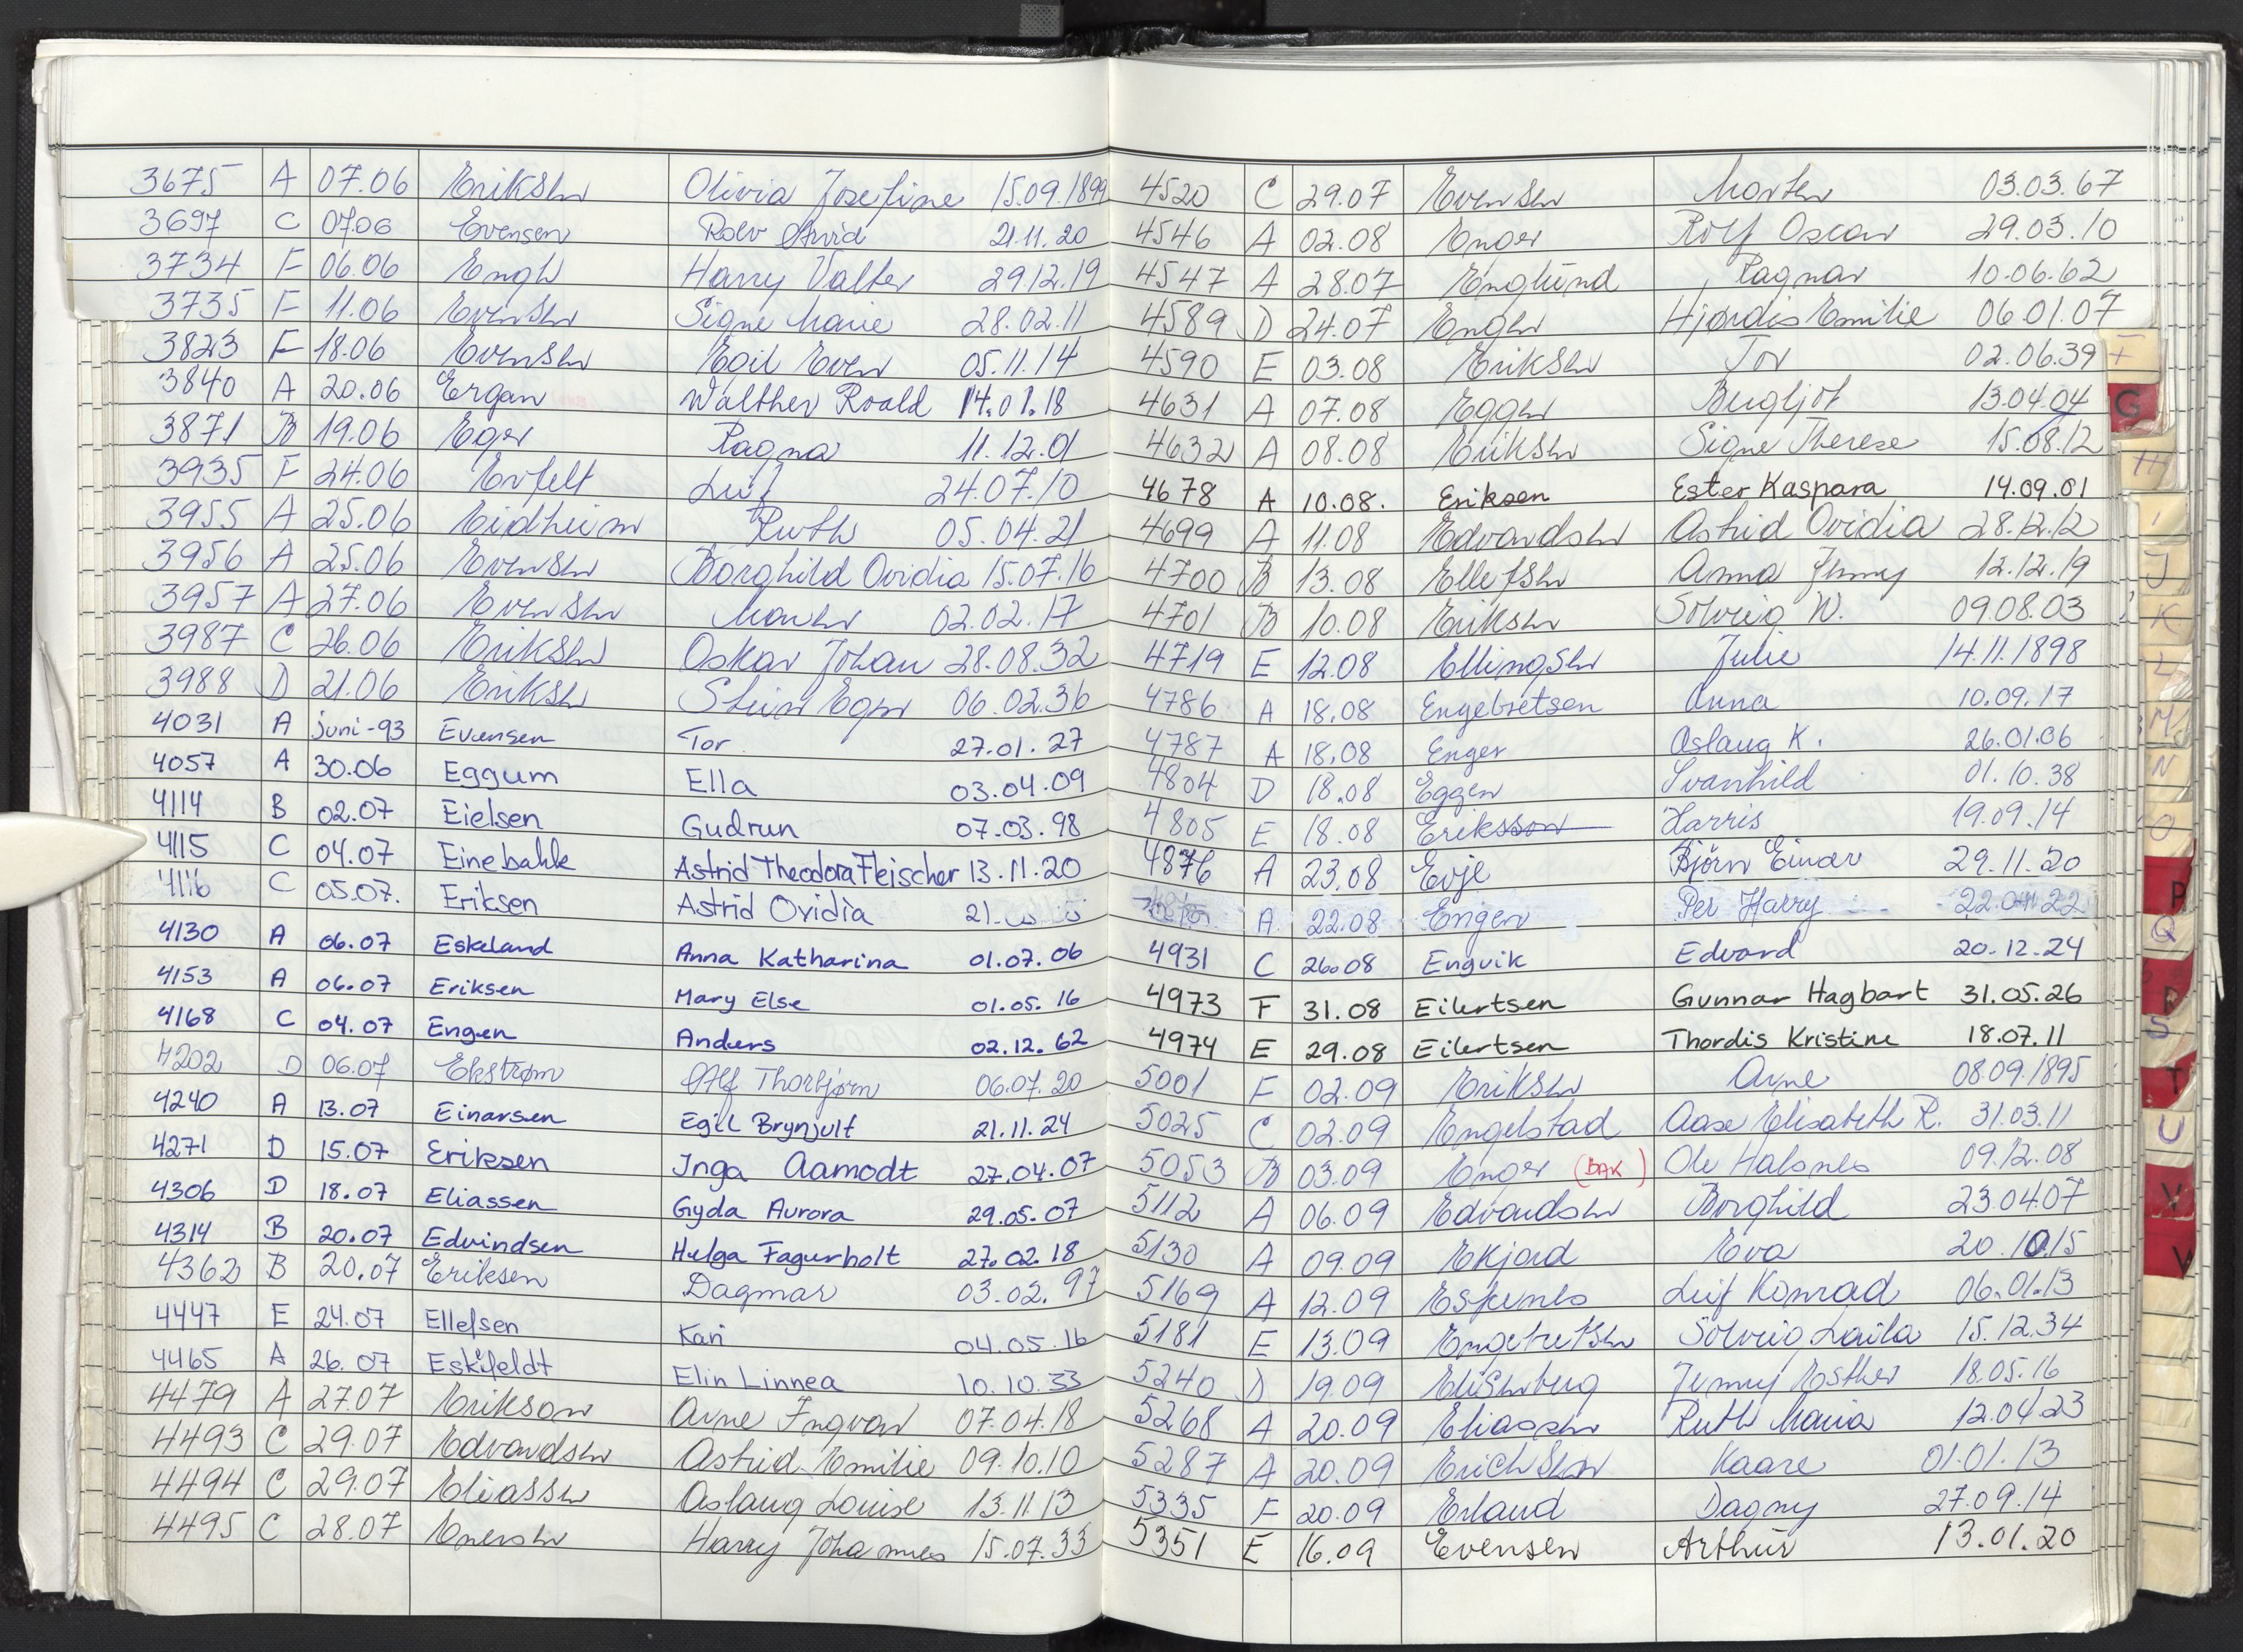 3675 A 07.06 Eriksen Olivia Josefine 15.09.1899
3697 C 07.06 Evensen Rolv Arvid 21.11.20
3734 F 06.06 Engh Harry Valter 29.12.19
3735 F 11.06 Evensen Signe Marie 28.02.11
3823 F 18.06 Evensen Egil Even 05.11.14
3840 A 20.06 Ergan Walther Roald 14.01.18
3871 B 19.06 Eger Ragna 11.12.01
3935 F 24.06 Erfelt Leif 24.07.10
3955 A 25.06 Eidheim Ruth 05.04.21
3956 A 25.06 Evensen Borghild Ovidia 15.07.16
3957 A 27.06 Evensen 02.02.17
3987 C 26.06 Eriksen Oskar Johan 28.08.32
3988 D 21.06 Eriksen Stein Eger 06.02.36
4031 A juni-93 Evensen Tor 27.01.27
4057 A 30.06 Eggum Ella 03.04.09
4114 B 02.07 Eielsen Gudrun 07.03.98
4115 C 04.07 Einebakk Astrid Theodora Fleischer 13.11.20
4116 C 05.07. Eriksen Astrid Ovidia 21.
4130 A 06.07 Eskeland Anna Katharina 01.07.06
4153 A 06.07 Eriksen Mary Else 01.05.16
4168 C 04.07 Engen Anders 02.12.62
4202 D 06.07 Ekstrøm Alf Thorbjørn 06.07.20
4240 A 13.07 Einarsen Egil Brynjulf 21.11.24
4271 D 15.07 Eriksen Inga Aamodt 27.04.07
4306 D 18.07 Eliassen Gyda Aurora 29.05.07
4314 B 20.07 Edvindsen Helga Fagerholt 27.02.18
4362 B 20.07 Eriksen Dagmar 03.02.97
4447 E 24.07 Ellefsen Kari 04.05.16
4465 A 26.07 Eskifeldt Elin Linnea 10.10.33
4479 A 27.07 Erikson Arne Ingvar 07.04.18
4493 C 29.07 Edvardsen Astrid Emilie 09.10.10
4494 C 29.07 Eliassen Aslaug Louise 13.11.13
4495 C 28.07 Enersen Harry Johannes 15.07.33
4520 C 29.07 Evensen Morten 03.03.67
4546 A 02.08 Enger Rolf Oscar 29.03.10
4547 A 28.07 Englund Ragnar 10.06.62
4589 D 24.07 Engen Hjørdis Emilie 06.01.07
4590 E 03.08 Eriksen Tor 02.06.39
4631 A 07.08 Eggen Bergljot 13.04.04
4632 A 08.08 Eriksen Signe Therese 15.08.12
4678 A 10.08. Eriksen Ester Kaspara 14.09.01
4699 A 11.08 Edvardsen Astrid Ovidia 28.12.12
4700 B 13.08 Ellefsen Anna Jenny 12.12.19
4701 B 10.08 Eriksen Solveig W. 09.08.03
4719 E 12.08 Ellingsen Julie 14.11.1898
4786 A 18.08 Engebretsen Anna 10.09.17
4787 A 18.08 Enger Aslaug K. 26.01.06
4804 D 18.08 Eggen Svanhild 01.10.38
4805 E 18.08 Eriksson Harris 19.09.14
4876 A 23.08 Evje Bjørn Einar 29.11.20
A 22.08 Engen Per Harry 22.04.22
4931 C 26.08 Engvik Edvard 20.12.24
4973 F 31.08 Eilertsen Gunnar Hagbart 31.05.26
4974 E 29.08 Eilertsen Thordis Kristine 18.07.11
5001 F 02.09 Eriksen Arne 08.09.1895
5025 C 02.09 Engelstad Aase Elisabeth R. 31.03.11
5053 B 03.09 Enger (BAK) Ole Halsnes 09.12.08
5112 A 06.09 Edvardsen Borghild 23.04.07
5130 A 09.09 Ekjord Eva 20.10.15
5169 A 12.09 Espenes Leif Konrad 06.01.13
5181 E 13.09 Engebretsen Solveig Laila 15.12.34
5240 D 19.09 Elisenberg Jenny Esther 18.05.16
5268 A 20.09 Eliassen Ruth Maria 12.04.23
5287 A 20.09 Erichsen Kaare 01.01.13
5335 F 20.09 Erland Dagny 27.09.14
5351 E 16.09 Evensen Arthur 13.01.20
F
G
H
I
J
K
L
M
N
O
P
Q
R
S
T
U
V
W